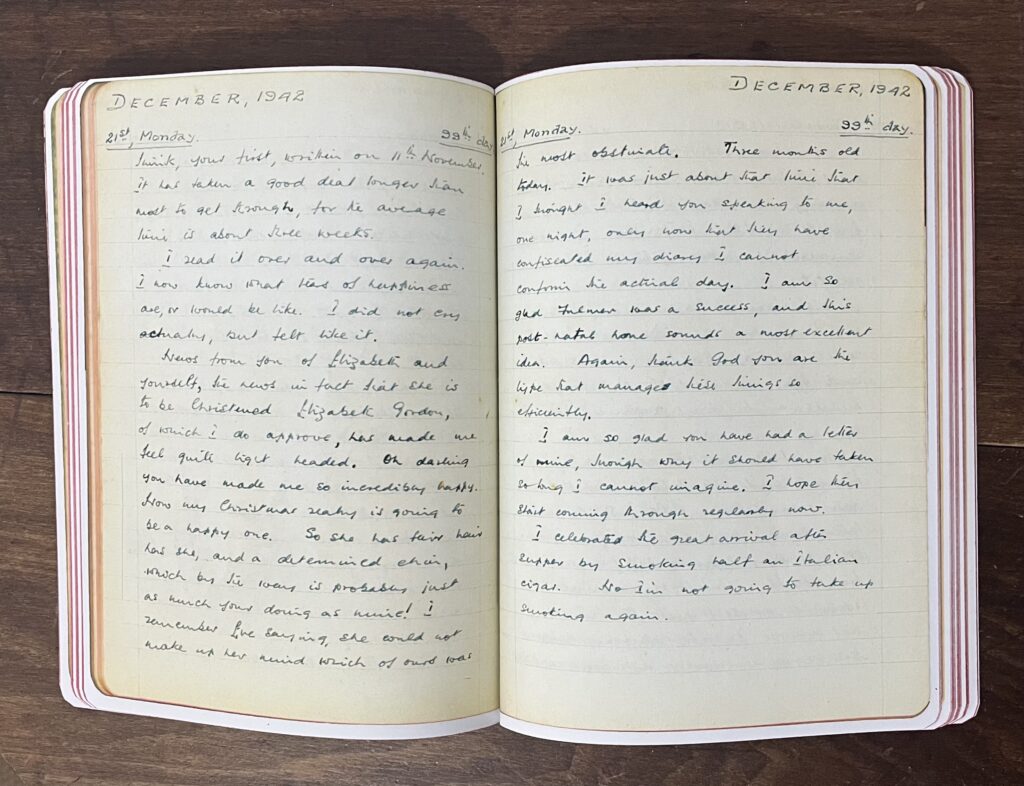 DECEMBER, 1942
21st, Monday. 99th day
think, your first, written on 11th November.
It has taken a good deal longer than
most to get through, for the average
time is about three weeks.
I read it over and over again.
I now know what tears of happiness
are, or would be like. I did not cry
actually, but felt like it.
News from you of Elizabeth and
yourself, the news in fact that she is
to be Christened Elizabeth Gordon,
of which I do approve, has made me
feel quite light headed. Oh darling
you have made me so incredibly happy.
Now my Christmas really is going to
be a happy one. So she has fair hair
has she, and a determined chin,
which by the way is probably just
as much your doing as mine! I
remember Eve saying, she could not
make up her mind which of ours was
DECEMBER, 1942
21st, Monday. 99th day.
the most obstinate. Three months old
today. It was just about that time that
I thought I heard you speaking to me,
one night, only now that they have
confiscated my diary I cannot
confirm the actual day. I am so
glad Fulmer was a success, and this
post-natal home sounds a most excellent
idea. Again, thank God you are the
type that manages these things so
efficiently.
I am so glad you have had a letter
of mine, though why it should have taken
so long I cannot imagine. I hope they
start coming through regularly now.
I celebrated the great arrival after
supper by smoking half an Italian
cigar. No I'm not going to take up
smoking again.